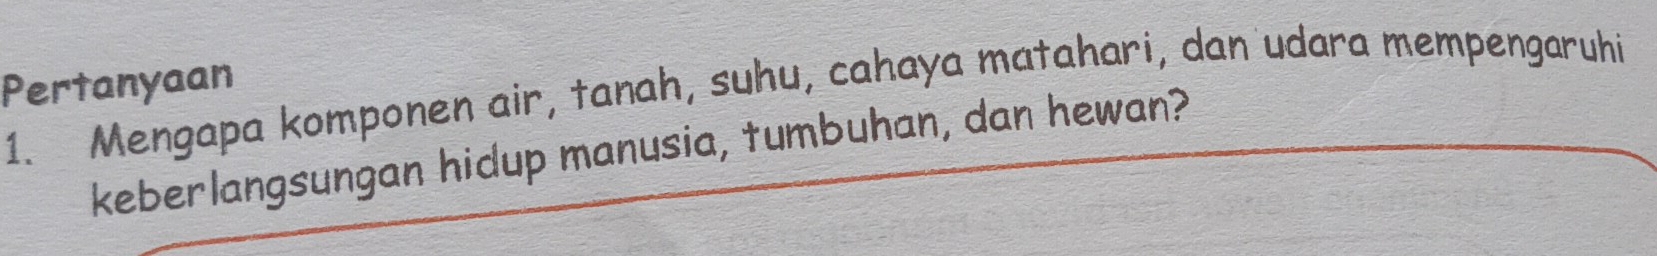 Pertanyaan
1. Mengapa komponen air, tanah, suhu, cahaya matahari, dan udara mempengaruhi
keberlangsungan hidup manusia, tumbuhan, dan hewan?